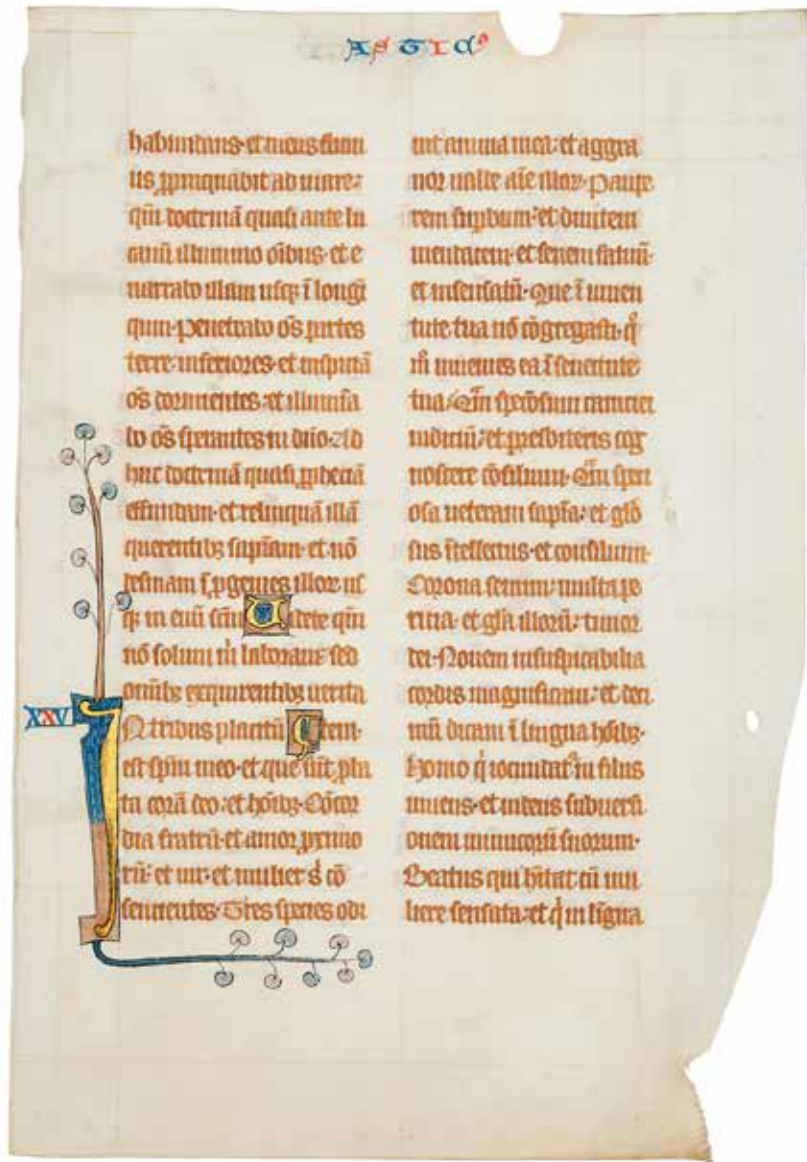 ASTIC9
habundans·et meus fluui
us ꝓpinquabit ad mare:
qm̄ doctrinā quasi ante lu
canū illumino oībus·et e
narrabo illam usq; ī longī
quum·penetrabo oēs partes
terre inferiores·et inspiciā
oēs dormientes·et illumīa
bo oēs sperantes in dño·Ad
huc doctrinā quasi ꝓphetiā
effundam·et relinquā illā
querentibꝫ sapīam·et nō
desinam ī ꝓgenies illoꝝ us
qꝫ in euū scm̄ Videte qm̄
nō solum m̄ laboraui sed
omībꝫ exquirentibꝫ uerita
XXV
IN tribus placitū tem·
est spūi meo·et que sūt ꝓba
ta corā deo:et hōībꝫ·Cōcor
dia fratrū·et amor ꝓximo
rū·et uir·et mulier s̄ cō
sentientes·Tres species odi
uit anima mea:et aggra
uor ualde aīe illoꝝ·Paupe
rem suꝑbum:et diuitem
mendacem·et senem fatuū·
et insensatū·Que ī iuuen
tute tua nō cōgregasti·qͦ
m̊ inuenies ea ī senectute
tua:Qm̄ speciosum caniciei
iudiciū:et presbiteris cog
noscere cōsilium·Qm̄ speci
osa ueterani sapīa:et glō
sus ītellectus·et consilium·
Corona senum:multa pe
ritia·et glīa illorū:timor
dei·Nouem insuspicabilia
cordis magnificaui:et deci
mū dicam ī lingua hōībꝫ·
Homo q̇ iocundatͬ in filiis
uiuens·et uidens subuersi
onem inimicorū suorum·
Beatus qui hītat cū mu
liere sensata:et q̇ in līgua